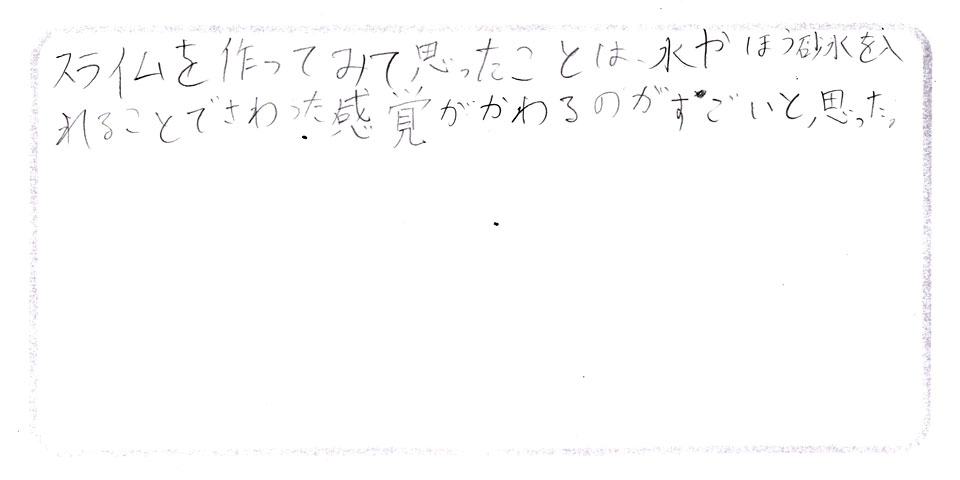 スライムを作ってみて思ったことは、水やほう砂水を入
れることでさわった感覚がかわるのがすごいと思った。